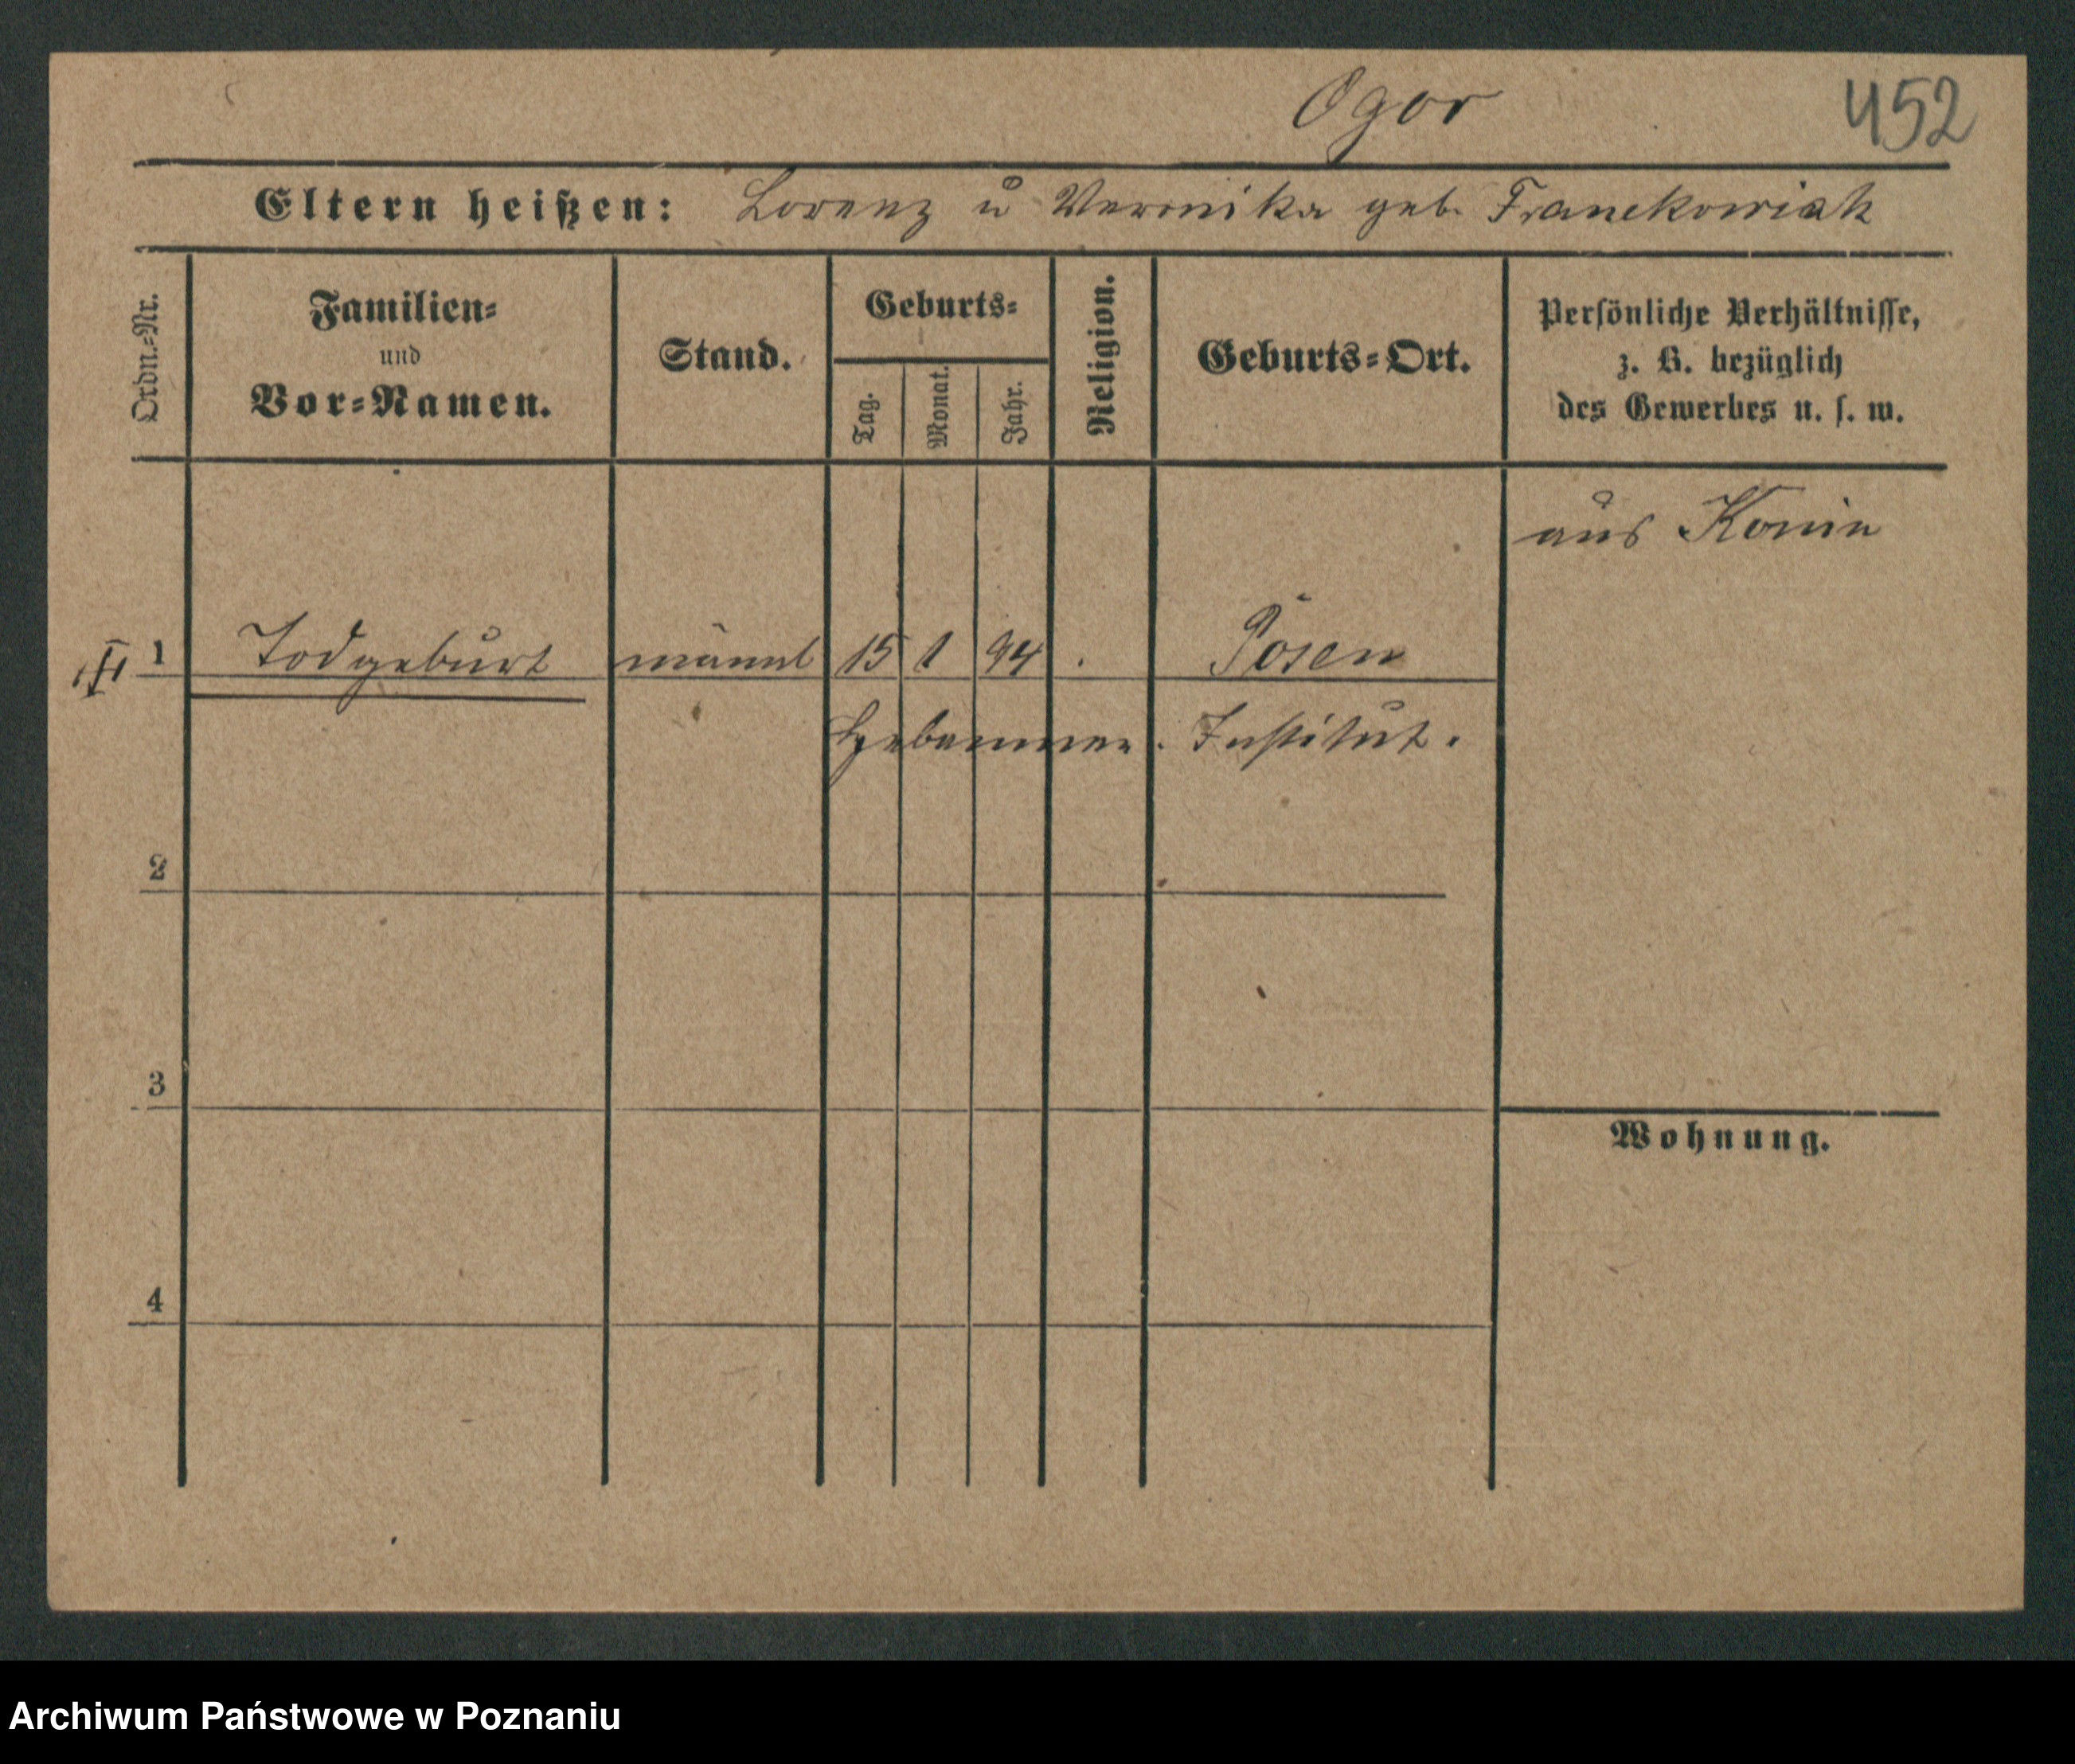 Ogor
452
Eltern heißen: Lorenz u Veronika geb. Franekowiak
Ordn.-Nr.
Familien-
und
Vor-Namen.
Stand.
Geburts-
Tag.
Monat.
Jahr.
Religion.
Geburts-Ort.
Persönliche Verhältnisse,
z. B. bezüglich
des Gewerbes u. s. w.
aus Konin
1 Todgeburt männl 15 1 94 . Posen
Hebammen. Institut.
2
3
Wohnung.
4
Archiwum Państwowe w Poznaniu